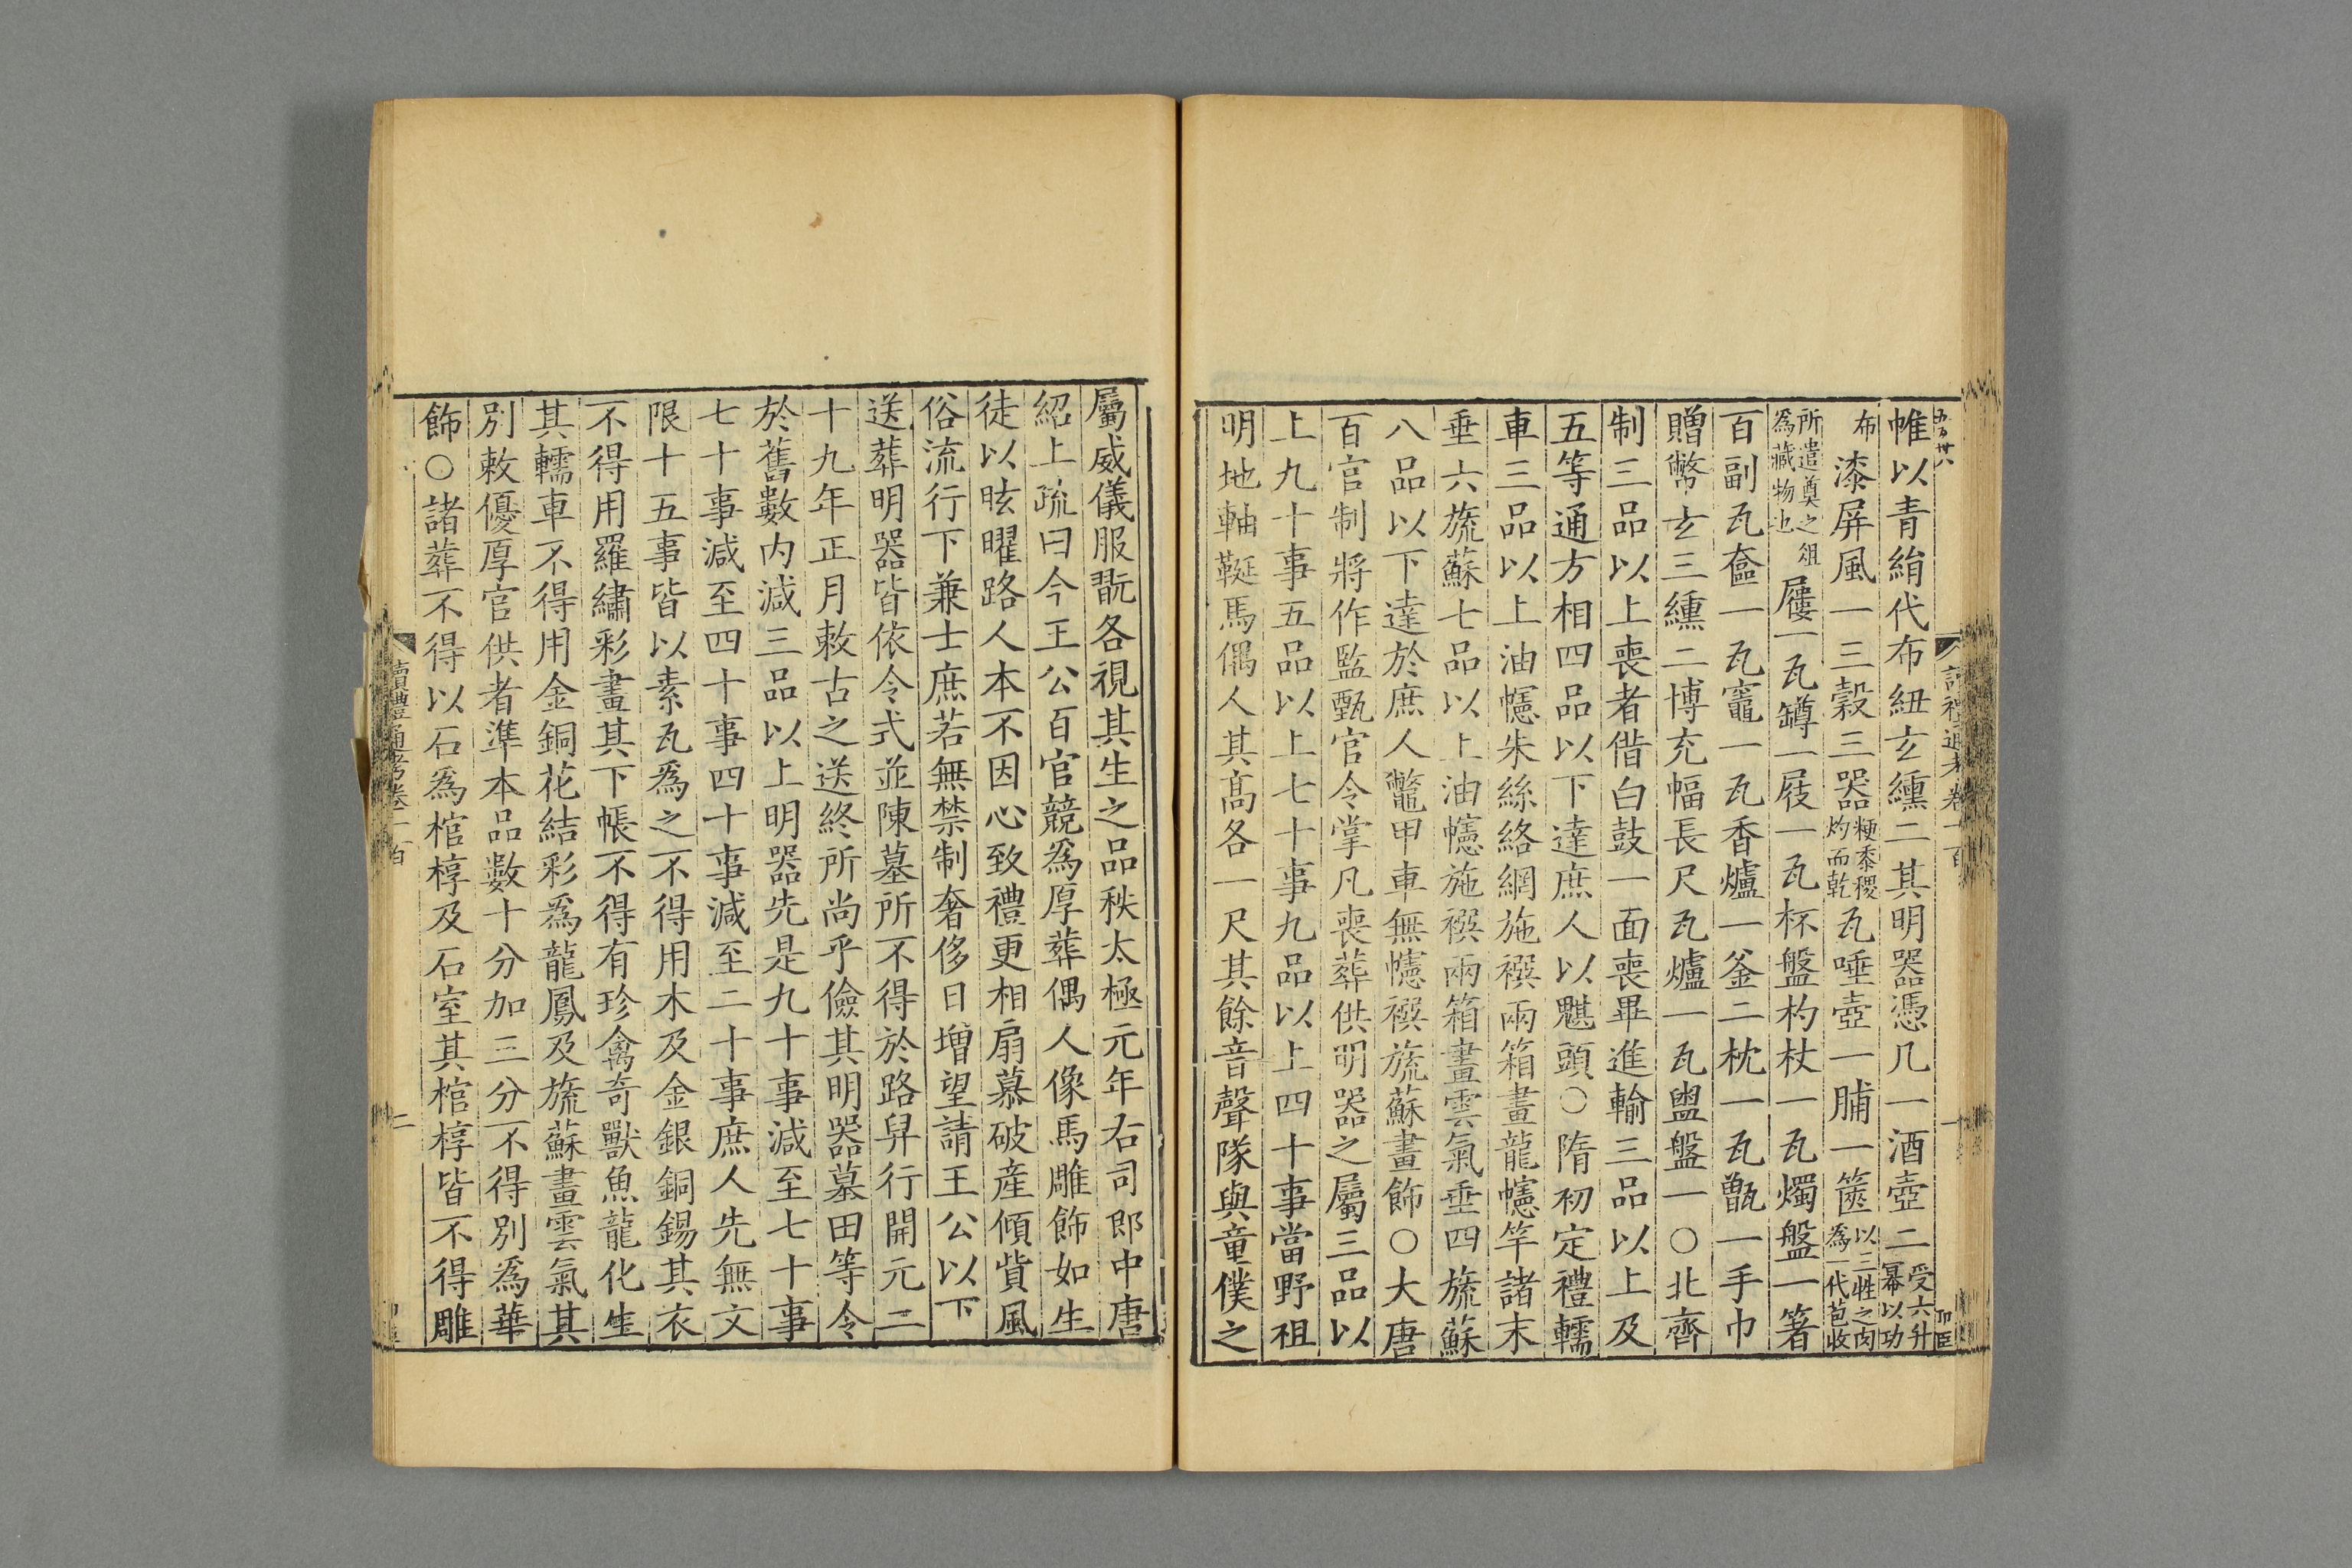 帷以青絹代布紐玄纁二其明器憑几一酒壺二受六升冪以功
布漆屏風一三穀三器粳黍稷灼而乾瓦唾壺一脯一篋以三牲之肉為一代苞收
所遣奠之俎為藏物也屨一瓦罇一屐一瓦杯盤杓杖一瓦燭盤一箸
百副瓦奩一瓦竈一瓦香爐一釜二枕一瓦甑一手巾
贈幣玄三纁二博充幅長尺瓦爐一瓦盥盤一○北齊
制三品以上喪者借白鼓一面喪畢進輸三品以上及
五等通方相四品以下達庶人以魌頭○隋初定禮轜
車三品以上油幰朱絲絡網施襈兩箱畫龍幰竿諸末
垂六旒蘇七品以上油幰施襈兩箱畫雲氣垂四旒蘇
八品以下達於庶人鼈甲車無幰襈旒蘇畫飾○大唐
百官制將作監甄官令掌凡喪葬供明器之屬三品以
上九十事五品以上七十事九品以上四十事當野祖
明地軸䩠馬偶人其高各一尺其餘音聲隊與童僕之
屬威儀服翫各視其生之品秩太極元年右司郎中唐
紹上疏曰今王公百官競為厚葬偶人像馬雕飾如生
徒以眩曜路人本不因心致禮更相扇慕破産傾貲風
俗流行下兼士庶若無禁制奢侈日增望請王公以下
送葬明器皆依令式並陳墓所不得於路舁行開元二
十九年正月敕古之送終所尚乎儉其明器墓田等令
於舊數內減三品以上明器先是九十事減至七十事
七十事減至四十事四十事減至二十事庶人先無文
限十五事皆以素瓦為之不得用木及金銀銅錫其衣
不得用羅繡彩畫其下帳不得有珍禽奇獸魚龍化生
其轜車不得用金銅花結彩為龍鳳及旒蘇畫雲氣其
別敕優厚官供者準本品數十分加三分不得別為華
飾○諸葬不得以石為棺椁及石室其棺椁皆不得雕
讀禮通考卷一百
二